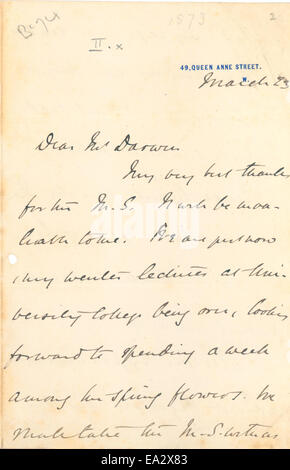 B-74
1873
2
II. x
49, QUEEN ANNE STREET.
W.
March 23
Dear Mr Darwin
My very best thanks
for the M.S. It will be inva-
luable to me. We are just now
, my winter lectures at Uni-
versity College being over, looking
forward to spending a week
among the spring flowers. We
shall take the M.S. with us
alamy
EA2X83